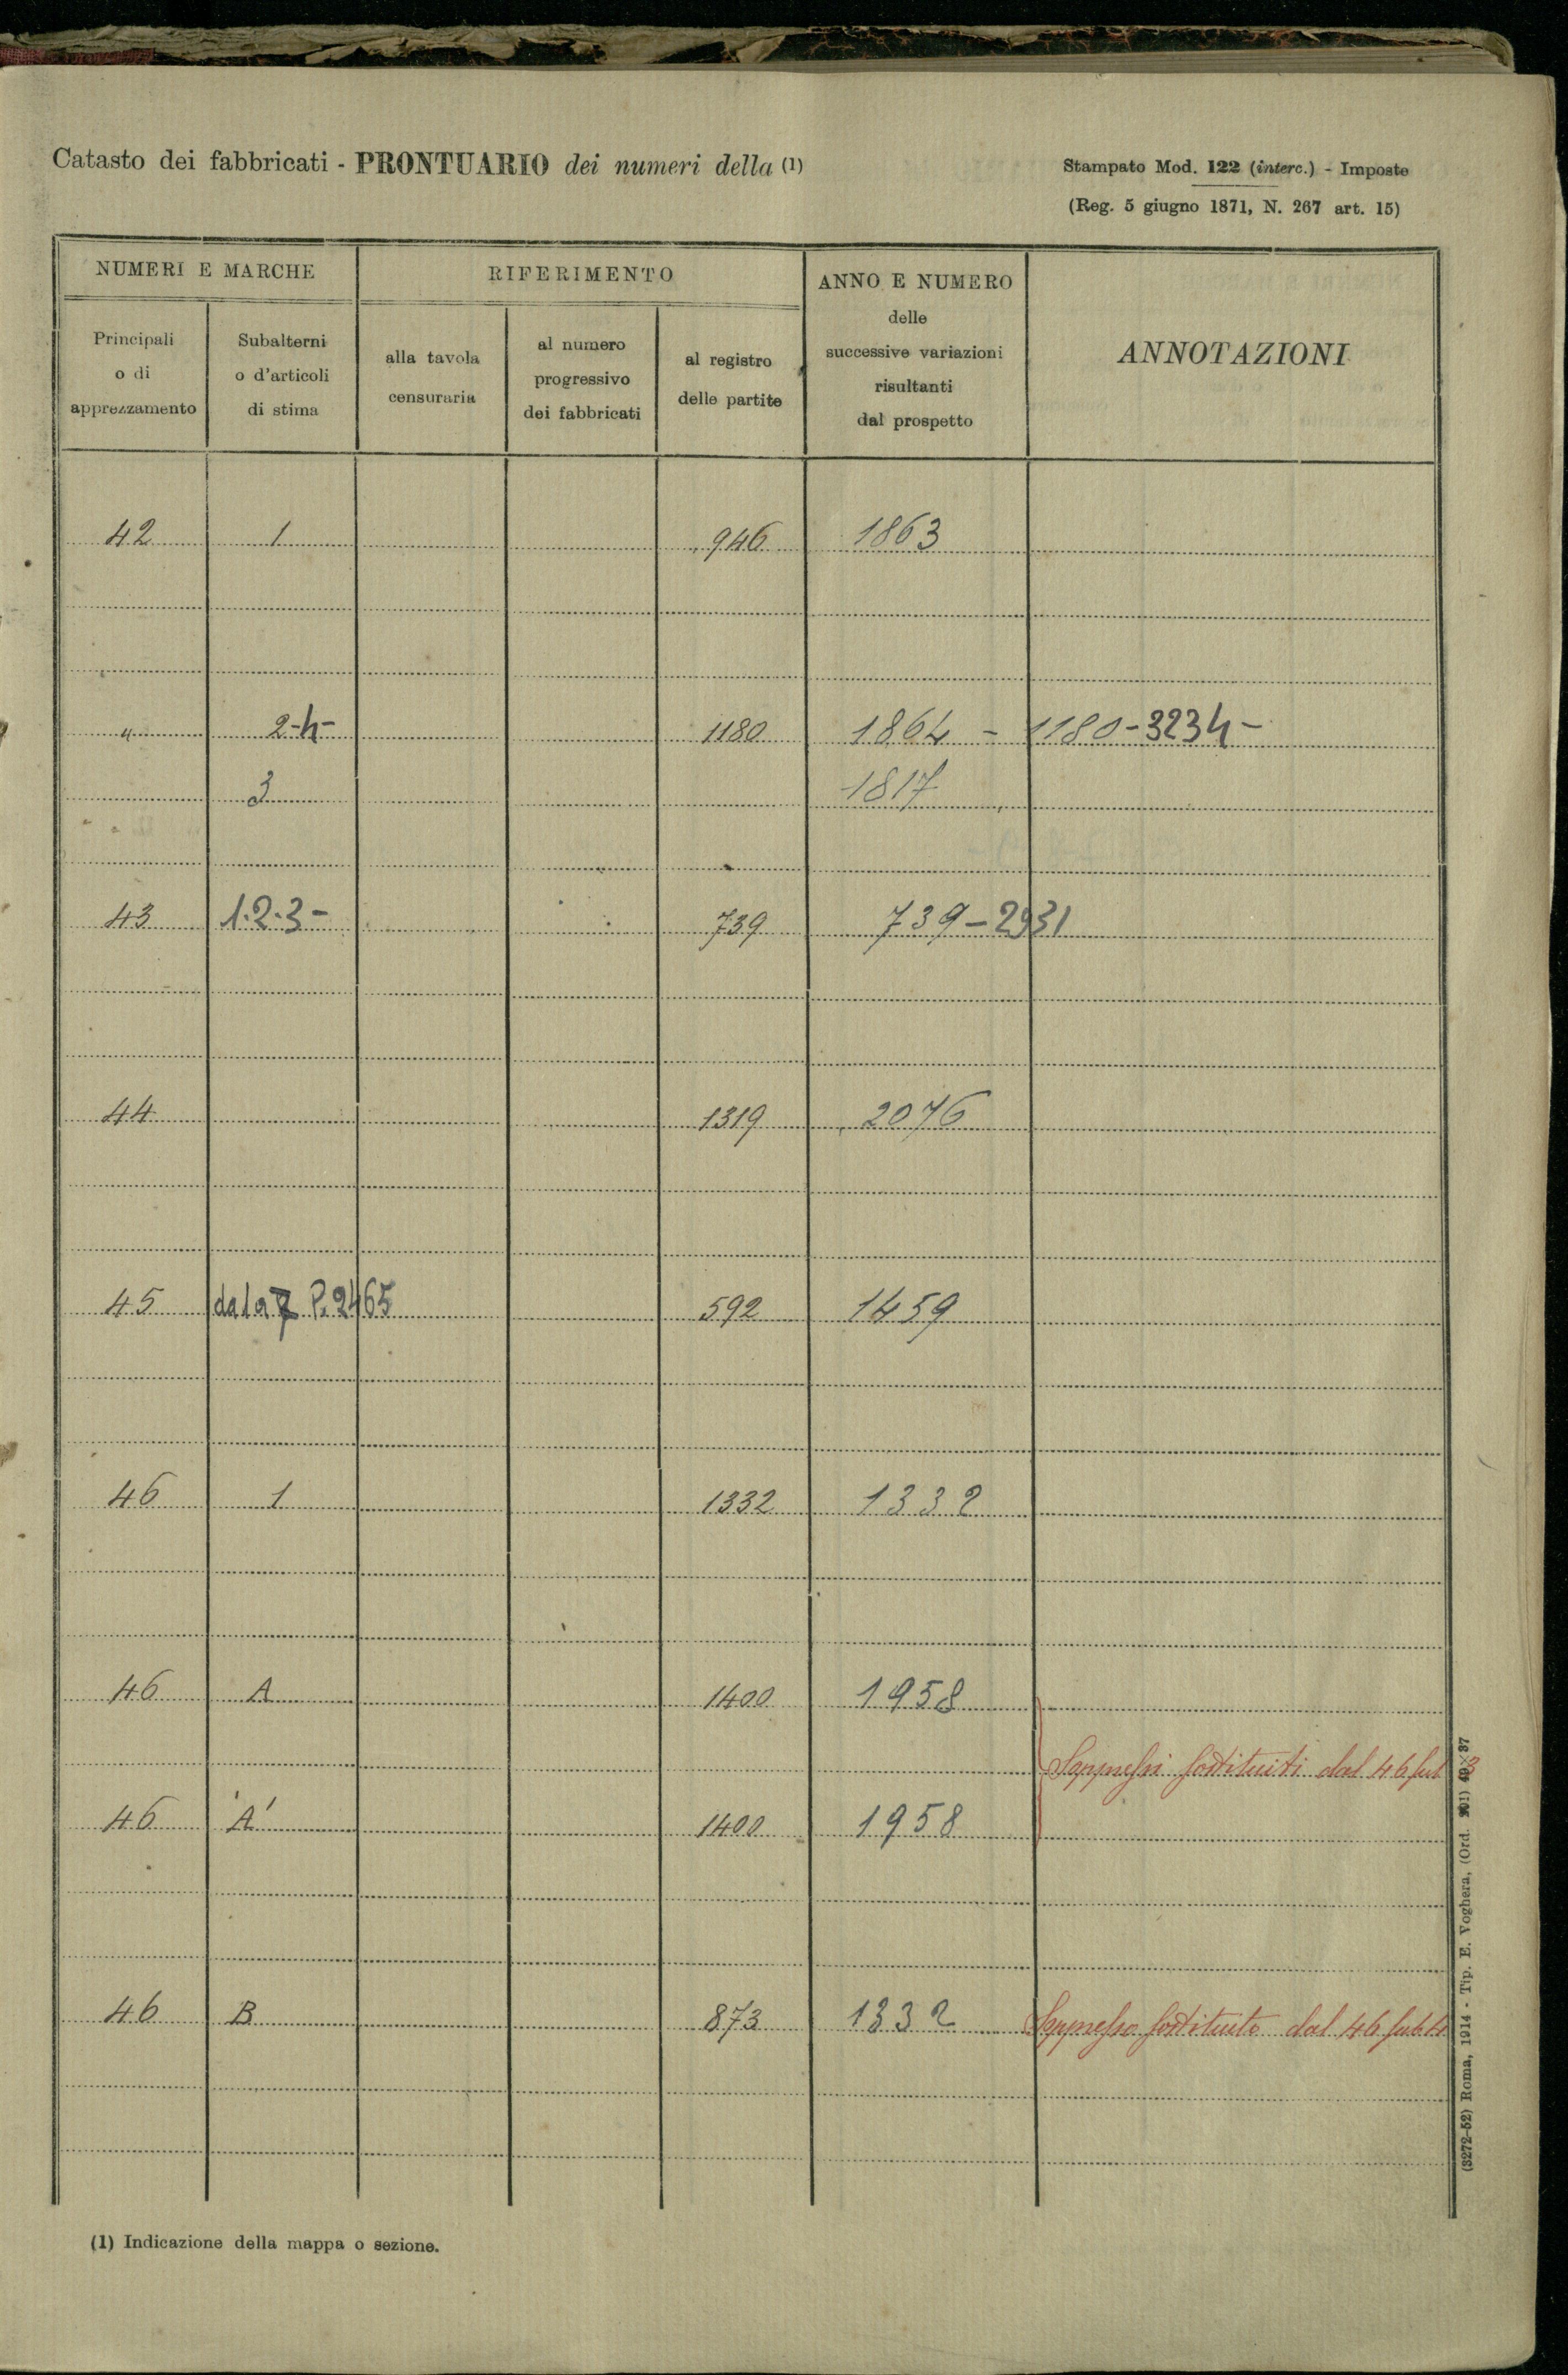 Catasto dei fabbricati - PRONTUARIO dei numeri della (1)
Stampato Mod. 122 (interc.) - Imposte
(Reg. 5 giugno 1871, N. 267 art. 15)
NUMERI E MARCHE
RIFERIMENTO
ANNO E NUMERO
delle
successive variazioni
risultanti
dal prospetto
ANNOTAZIONI
Principali
o di
apprezzamento
Subalterni
o d'articoli
di stima
alla tavola
censuraria
al numero
progressivo
dei fabbricati
al registro
delle partite
42 1 946 1863
" 2-4- 1180 1864 - 1180-3234-
3 1817
43 1.2.3- 739 739-2931
44 1319 2076
45 da 1 a 7 P. 2465 592 1459
46 1 1332 1332
46 A 1400 1958
Soppressi sostituiti dal 46 sub 3
46 A' 1400 1958
46 B 873 1332 Soppresso sostituito dal 46 sub 4
(1) Indicazione della mappa o sezione.
(3272-52) Roma, 1914 - Tip. E. Voghera, (Ord.